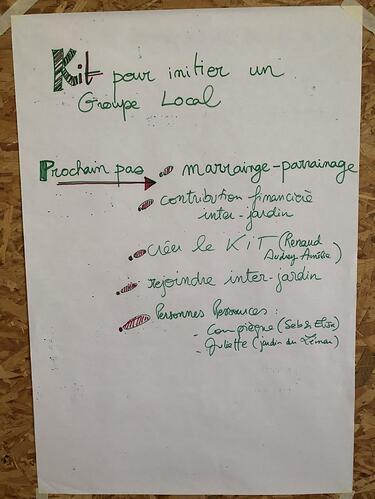 Kit pour initier un
Groupe Local
Prochain pas
marrainge-parrainage
contribution financière
inter-jardin
créer le KiT (Renaud
Audrey Amélie)
rejoindre inter-jardin
Personnes Ressources :
- Compiègne (Seb & Elise)
- Juliette (jardin du Léman)